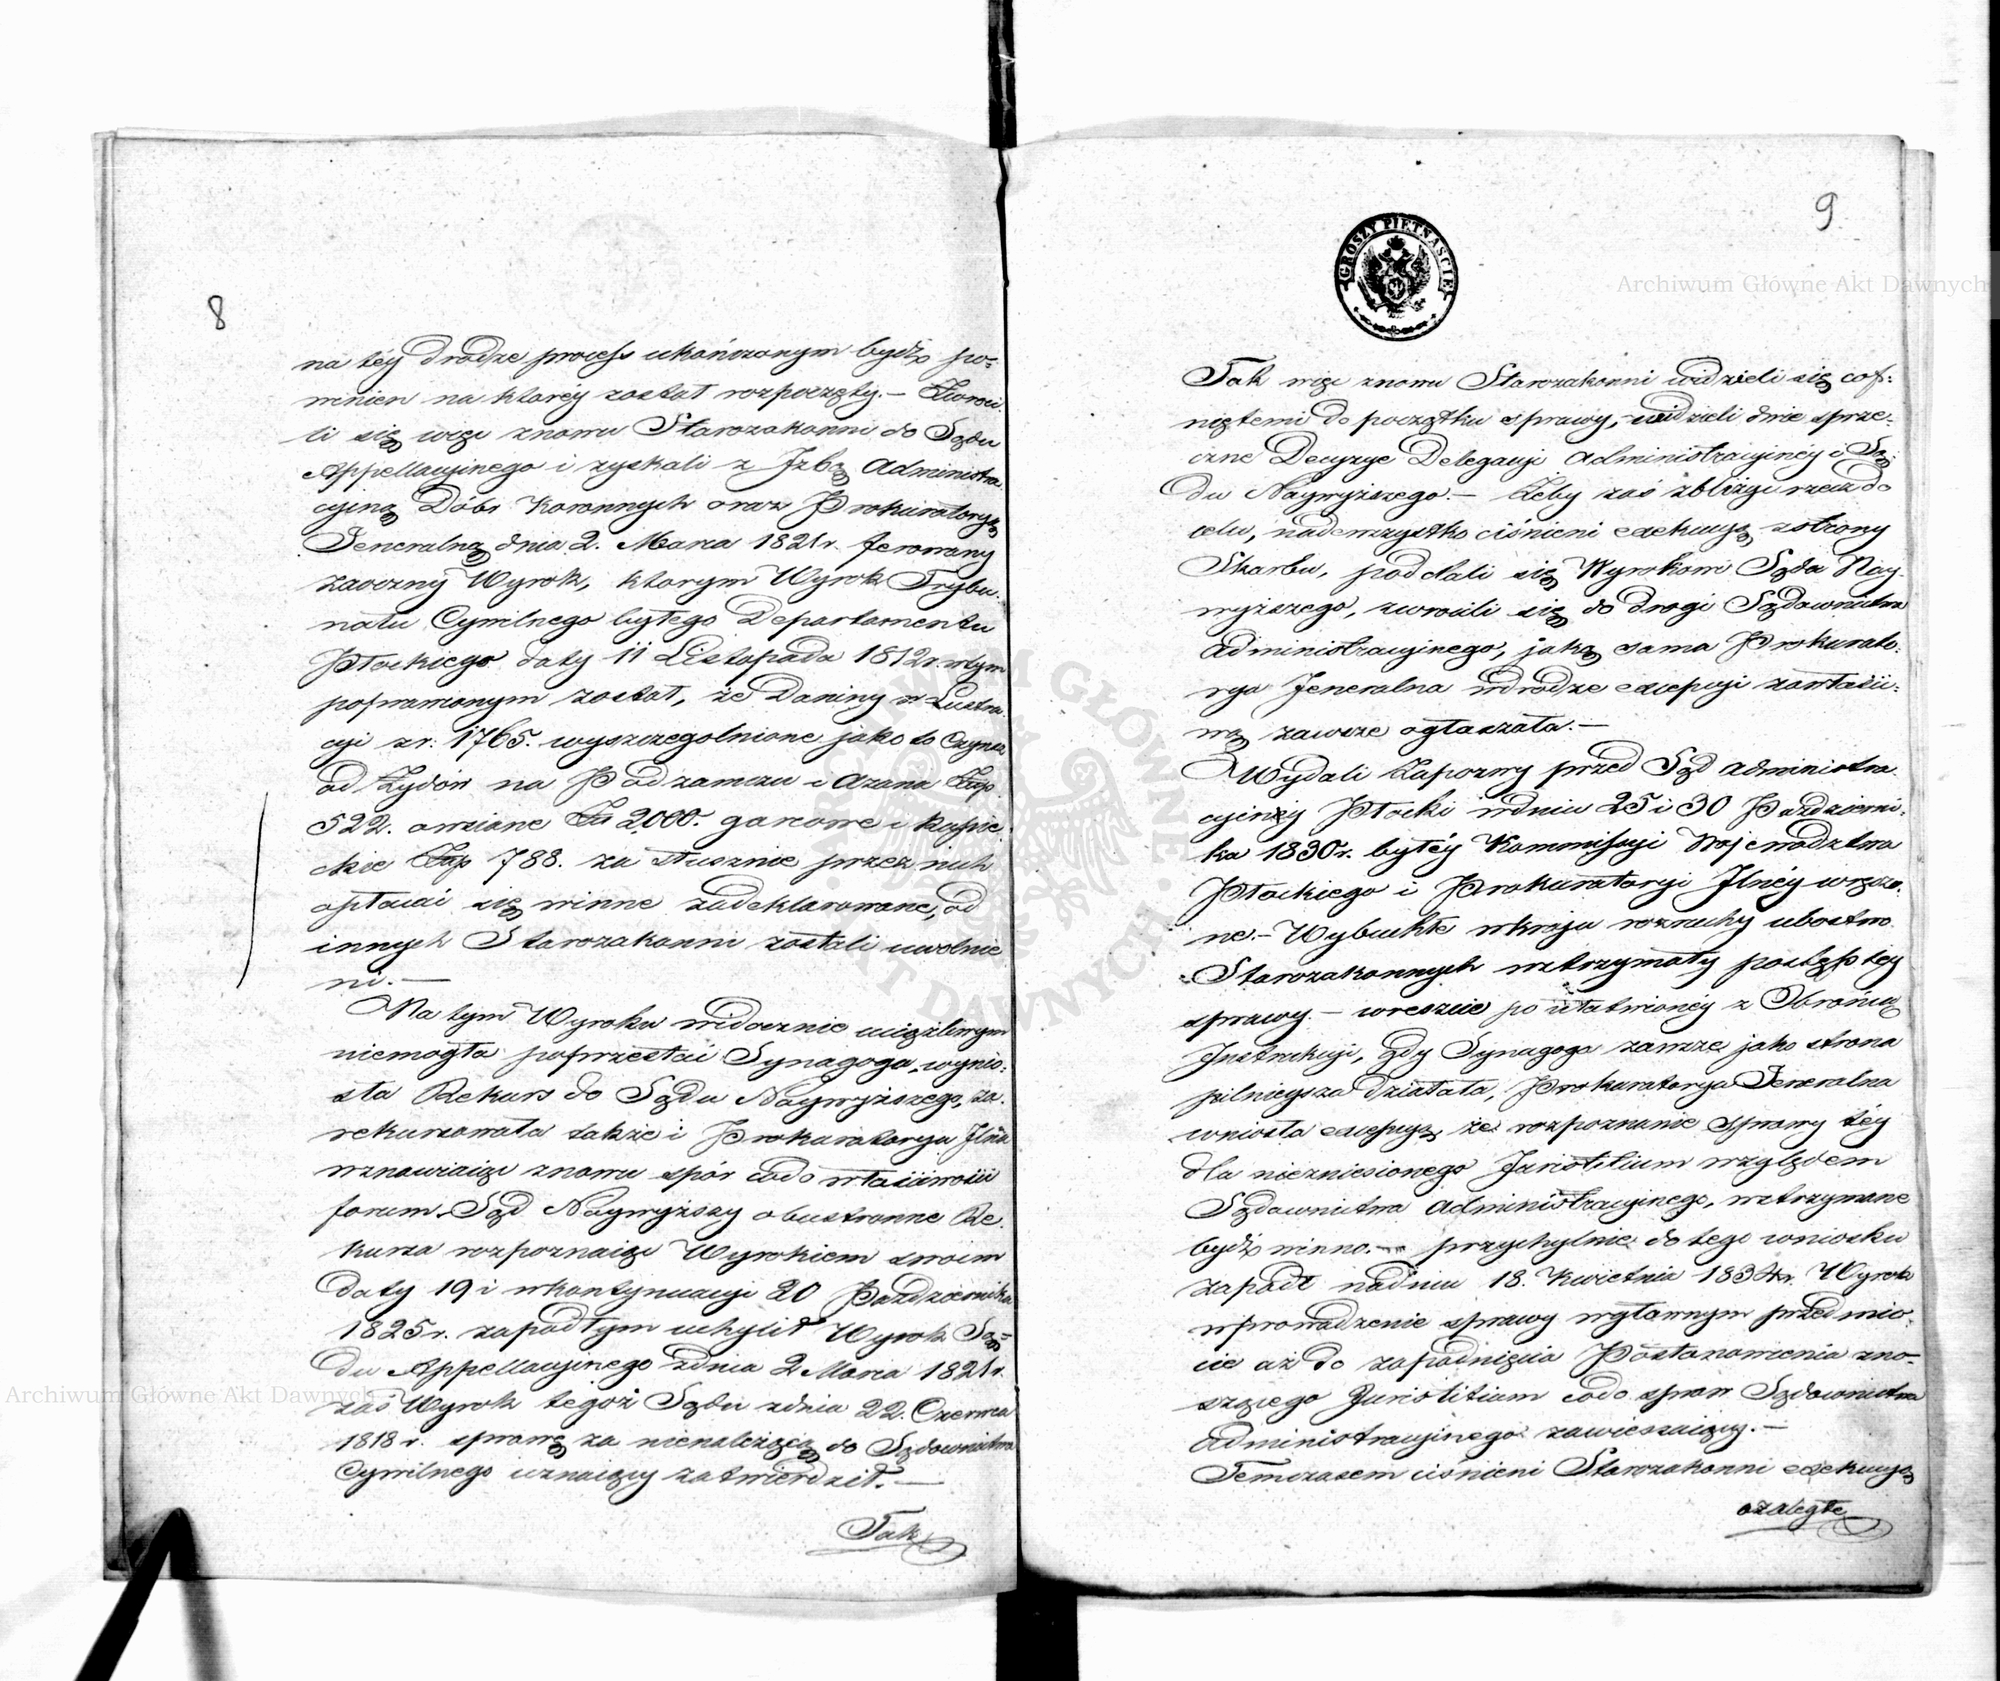 8
na téy drodze process ukończonym bydź po=
winien na któréy został rozpoczęty. – Zwróci
li się więc znowu Starozakonni do Sądu
Appellacyinego i zyskali z Izbą Administra
cyiną Dóbr Koronnych oraz Prokuratoryą
Jeneralną dnia 2. Marca 1821 r. ferowany
zaoczny Wyrok, którym Wyrok Trybu=
nału Cywilnego byłego Departamentu
Płockiego daty 11 Listopada 1812 r. w tym
poprawionym został, że Daniny w Lustra
cyi z r. 1765. wyszczególnione jako to Czynsz
od Żydów na Podzamczu i Azana Złp
522. owsiane Złp 2000. garcowe i kapie
ckie Złp 788. za słusznie przez nich
opłacać się winne zadeklarowane, od
innych Starozakonni zostali uwolnie
ni. —
Na tym Wyroku widocznie uciążliwym
niemogła poprzestać Synagoga, wynio=
sła Rekurs do Sądu Naywyższego, za=
rekursowała także i Prokuratorya Jlna
wznawiaiąc znowu spór codo właściwości
forum. Sąd Naywyższy obustronne Re=
kursa rozpoznaiąc Wyrokiem swoim
daty 19 i w kontynuacyi 20 Października
1825 r. zapadłym uchylił Wyrok Są=
du Appellacyinego zdnia 2 Marca 1821 r.
zaś Wyrok tegoż Sądu zdnia 22. Czerwca
1818 r. sprawę za nienależącą do Sądownictwa
Cywilnego uznaiący zatwierdził. —
Tak
9
GROSZY PIĘTNAŚCIE
Tak więc znowu Starozakonni widzieli się cof=
niętemi do początku sprawy, widzieli dwie sprze=
czne Decyzye Delegacyi Administracyinéy i Są=
du Naywyższego. – Żeby zaś zbliżyć rzecz do
celu, nadewszystko ciśnieni exekucyą zstrony
Skarbu, poddali się Wyrokom Sądu Nay=
wyższego, zwrócili się do drogi Sądownictwa
Administracyinego, jaką sama Prokurato=
rya Jeneralna wdrodze excepcyi zawłaści=
wą zawsze ogłaszała. —
Wydali Zapozwy przed Sąd Administra
cyinéy Płocki wdniu 25 i 30 Październi=
ka 1830 r. byłéy Kommissyi Województwa
Płockiego i Prokuratoryi Jlnéy wręczo=
ne. – Wybuchłe wkraju rozruchy ubóstwo
Starozakonnych wstrzymały postęp téy
sprawy – wreszcie po ułatwionéy z Obrońcą
Instrukcyi, gdy Synagoga zawsze jako strona
pilnieysza działała, Prokuratorya Jeneralna
wniosła excepcyą że rozpoznanie sprawy téy
dla niezniesionego Juristitium względem
Sądownictwa Administracyinego, wstrzymane
bydź winno. – przychylnie do tego wniosku
zapadł nadniu 18. Kwietnia 1834 r. Wyrok
wprowadzenie sprawy wgłównym przedmio=
cie aż do zapadnięcia Postanowienia zno=
szącego Juristitium codo spraw Sądownictwa
Administracyinego zawieszaiący. —
Temczasem ciśnieni Starozakonni exekucyą
ozaległe
Archiwum Główne Akt Dawnych
Archiwum Główne Akt Dawnych
ARCHIWUM GŁÓWNE AKT DAWNYCH